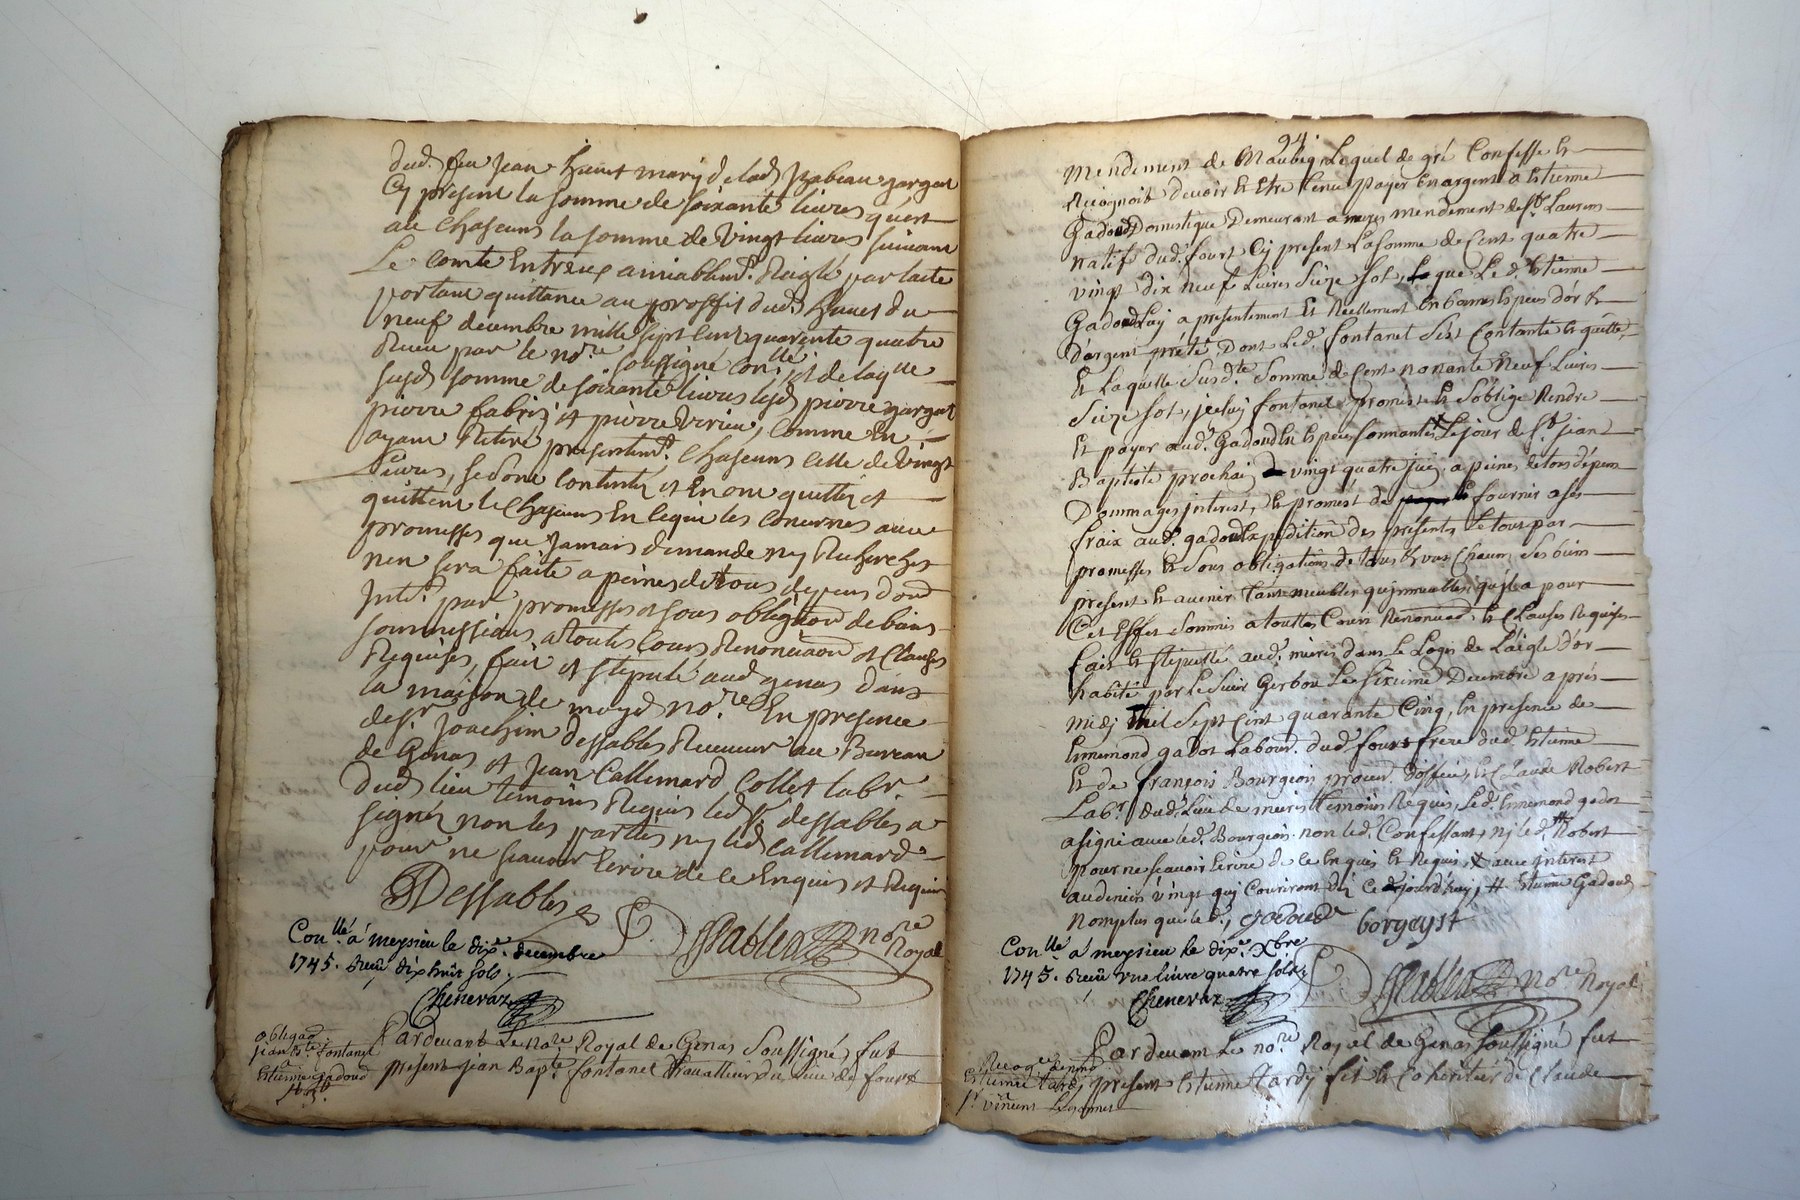 dud. feu Jean hunet mary de lad. Isabeau gargat
Cy present la somme de soixante livres qu'est
ale Chascuns la somme de Vingt livres suivant
Le comte Entreux amiablemt. Reiglé par lacte
portant quittance au proffit dud. hunet du
neuf decembre mille sept cent quarante quatre
Receu par le nore. soussigné conllé. et de laque
susd. somme de soixante livres lesd. pierre gargat
pierre fabri, et pierre Virieu, Comme En
ayant Retiré presentemt. Chascuns celle de Vingt
Livres, se sont contentés et En ont quitté et
quittent le Chascuns En ce qui les concernes avec
promesses que Jamais demande ny Recherches
nen sera faite a peines de tous depens dom
Inte. par promesses et sous obligaon de biens
soumissions a toutes Cours Renonciaon et Clauses
Requises, fait et stipulé aud. genas dans
la maison de moyd. nore. En presence
de sr. Joachim dessables Receveur au Bureau
de Genas et Jean Callemard Collet labr.
dud. lieu temoins Requis led. sr. dessables a
signé non les parties ny led. Callemard
pour ne scavoir Ecrire de ce Enquis et Requis
Dessables
nore. Royal
Conllé. á meysieu le dixe. decembre
1745. Receu dix huit sols.
Chenevaz
obligaon
jean bte. fontanel
Estienne gadoud
Pardevant Le nore. Royal de Genas Soussigné, fut
present jean Bapte. fontanel travailleur du lieu de fours
94.
mendement de Maubeg, Lequel de gré Confesse Et
Recognoit devoir Et Etre tenu payer En argent a Estienne
Gadoud Domestique Demeurant a meyes mendement de St. Laurens
natif dud. fours Cy present La somme de Cent quatre
vingt dix neuf Livres Seize Sols, Laque Le d. Estienne
Gadoud Luy a presentement Et Reellement En bonnes Especes d'or Et
d'argent preté, Dont Led. fontanel S'est Contanté Et quitte,
Et Laquelle Susdte. Somme de Cent nonante Neuf Livres
Seize Sols, jceluy fontanel promest Et S'oblige Rendre
Et payer aud. Gadoud En Especes Sonnantes Le jour de St. Jean
Baptiste prochain vingt quatre juin, a peines de tous dépens
Dommages interest, Et promest de fournir a Ses
fraix aud. gadoud Expedition des presentes Le tout par
promesses Et Sous obligations de tous Et un Chacun Ses biens
present Et avenir tant meubles qu'immeubles, qu'il a pour
Cet Effet Sommis a touttes Cours Renonciaon Et Clauses Requises
fait Et Stipullé aud. mieris dans Le Logis de L'aigle d'or
habité par Le Sieur Gerbou Le Sixieme Decembre aprés
midj mil Sept Cent quarante Cinq, En presence de
Ennemond gadot Labour. dud. fours frere dud. Estienne
Et de françois Bourgeois procur. d'office, Et Claude Robert
Labr. dud. Lieu de mieris temoins Requis, Led. Ennemond gadot
a signé avec led. Bourgeois non led. Confessant, Nj led. Robert
pour ne Scavoir Ecrire de ce Enquis Et Requis, avec interest
au denier vingt quj Couriront dez Cejourd'huy, Estienne Gadoud
Non plus que led., Gadoud borgeyst
Nore. Royal
Conllé. á meysieu le dixe. Xbre
1745. Receu une livre quatre sols.
Chenevaz
Estienne tardj
sr. vincent
Pardevant Le nore. Royal de Genas Soussigné fut
present Estienne Tardy fils Et Coheritier de Claude